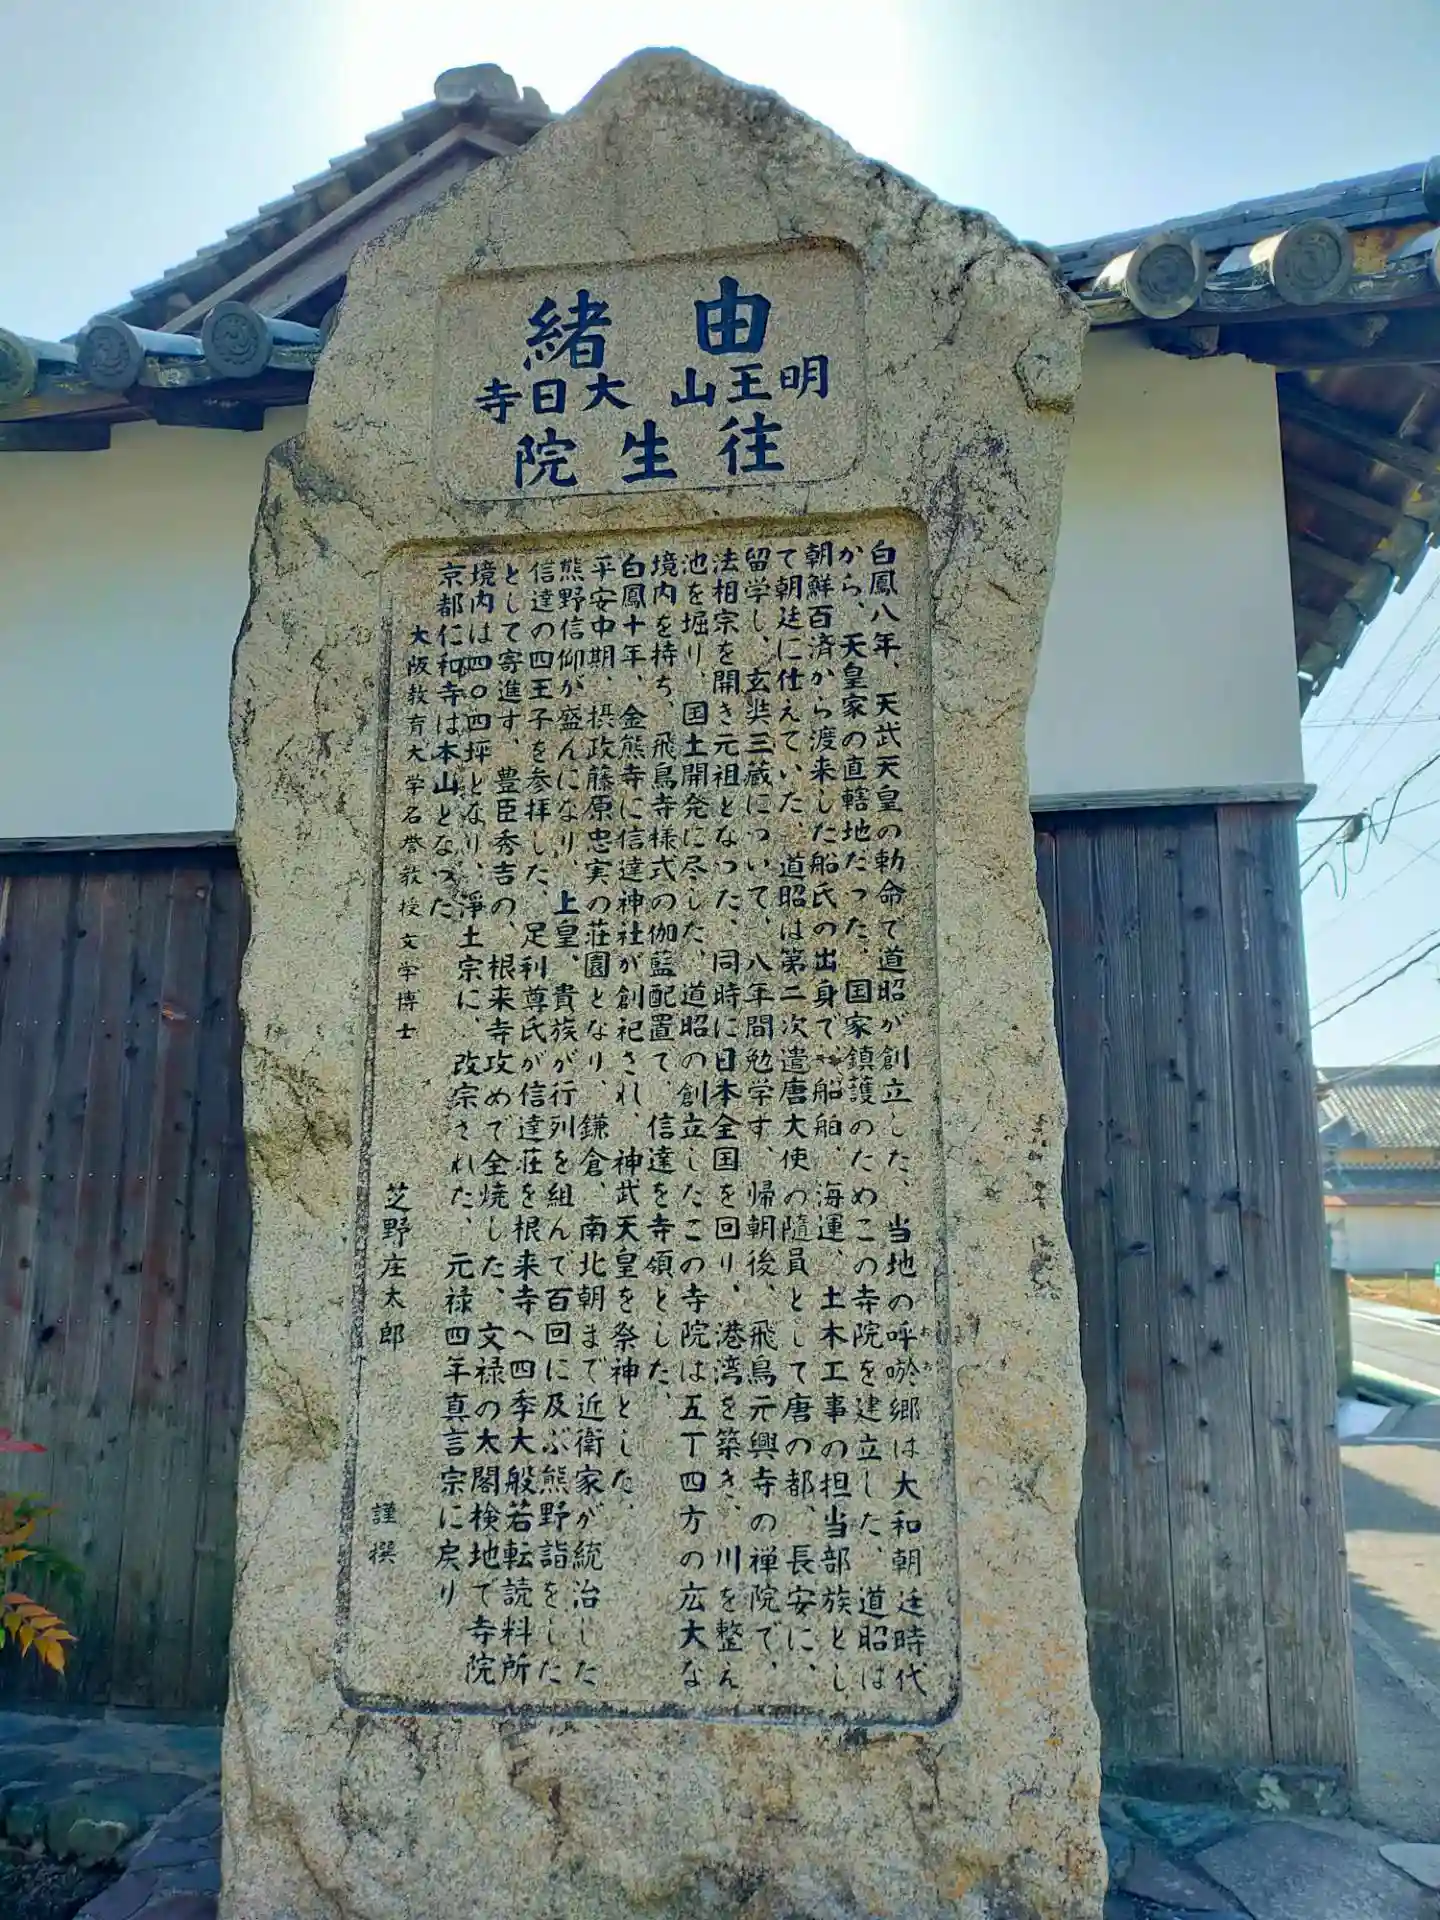 由緒
明王山大日寺
往生院
白鳳八年、天武天皇の勅命で道昭が創立した、当地の呼唹郷は大和朝廷時代
おお
から、天皇家の直轄地だった、国家鎮護のためこの寺院を建立した、道昭は
朝鮮百済から渡来した船氏の出身で、船舶、海運、土木工事の担当部族とし
て朝廷に仕えていた、道昭は第二次遣唐大使の随員として唐の都、長安に、
留学し、玄奘三蔵について、八年間勉学す、帰朝後、飛鳥元興寺の禅院で、
法相宗を開き元祖となった、同時に日本全国を回り、港湾を築き、川を整え
池を堀り、国土開発に尽した、道昭の創立したこの寺院は五丁四方の広大な
境内を持ち、飛鳥寺様式の伽藍配置で、信達を寺領とした、
白鳳十年、金熊寺に信達神社が創祀され、神武天皇を祭神とした、
平安中期、摂政藤原忠実の荘園となり、鎌倉、南北朝まで近衛家が統治した、
熊野信仰が盛んになり、上皇、貴族が行列を組んで百回に及ぶ熊野詣をした
信達の四王子を参拝した、足利尊氏が信達荘を根来寺へ四季大般若転読料所
として寄進す、豊臣秀吉の、根来寺攻めで全焼した、文禄の大閣検地で寺院
境内は四〇四坪となり、淨土宗に、改宗された、元禄四年真言宗に戻り
京都仁和寺は本山となった
大阪教育大学名誉教授 文学博士 芝野庄太郎 謹撰